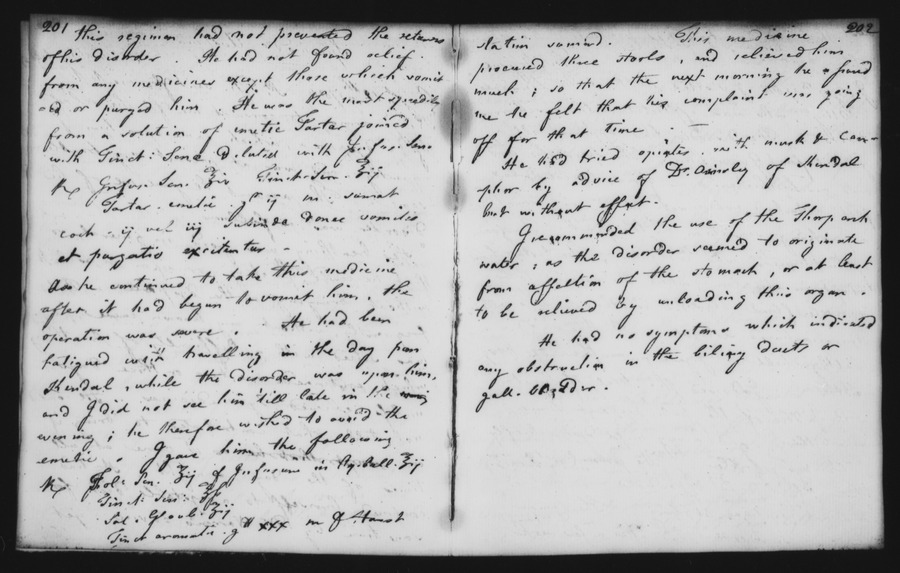 201
this regimen had not prevented the returns
of his disorder. He had not found relief
from any medicines except those which vomit-
ed or purged him. He was the most speedily
from a solution of emetic Tartar joined
with Tinct: Senæ diluted with Infus. Sen.
℞ Infus. Sen. ℥iv Tinct. Sen. ℥ij
Tartar. emetic. gr ij m. sumat
coch. ij vel iij subinde donec vomitio
et purgatio excitentur -
As he continued to take this medicine
after it had begun to vomit him, the
operation was severe. He had been
fatigued with travelling in the day from
Kendal, while the disorder was upon him,
and I did not see him till late in the
evening; he therefore wished to avoid the
emetic. I gave him the following
℞ Fol: Sen. ʒij f Infusum in Aq. bull. ℥ij
Tinct. Sen: ℥ſs
Sal. Glaub. ʒij
Tinct aromatic. gtt xxx m f Haust
202
statim sumend. This medicine
procured three stools, and relieved him
much; so that the next morning he assured
me he felt that his complaint was going
off for that time. —
He had tried opiates with musk & cam-
phor by advice of Dr. Ainsley of Kendal
but without effect.
I recommended the use of the Thorp arch
water; as the disorder seemed to originate
from affection of the stomach, or at least
to be relieved by unloading this organ.
He had no symptoms which indicated
any obstruction in the biliary ducts or
gall-bladder.